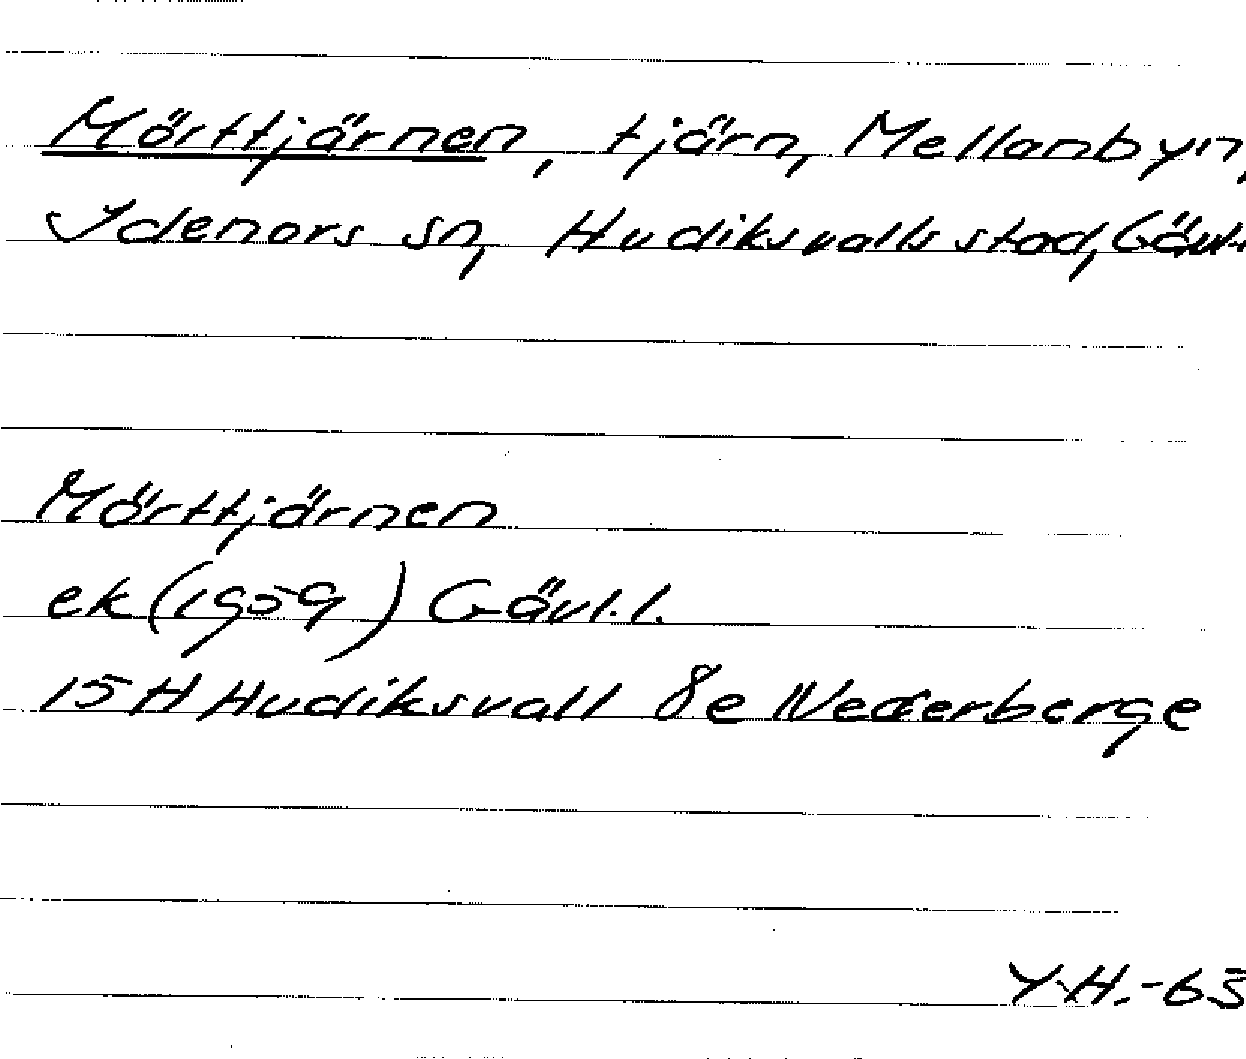 Mörttjärnen, tjärn, Mellanbyn,
Idenors sn, Hudiksvalls stad, Gävl.
Mörttjärnen
ek (1959) Gävl.l.
15H Hudiksvall 8e Nederberge
Y.H.-63